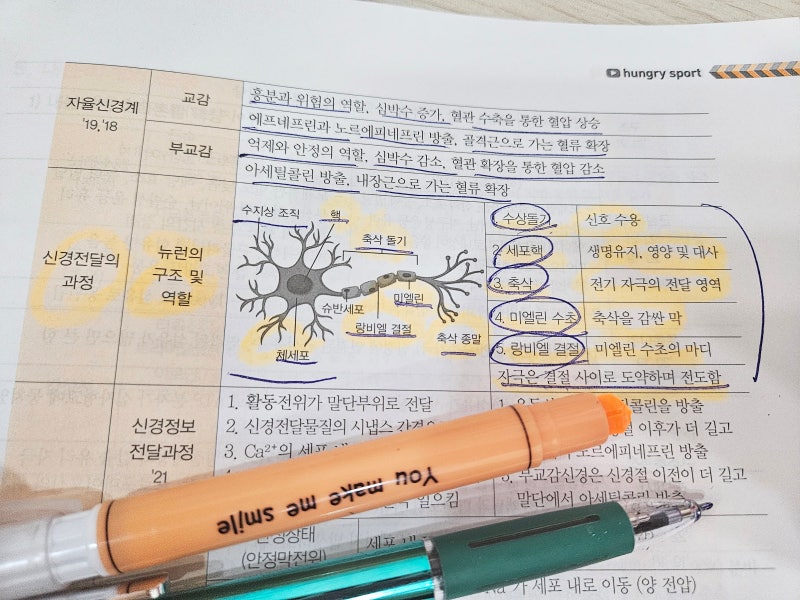 hungry sport
자율신경계
'19,'18
교감
흥분과 위험의 역할, 심박수 증가, 혈관 수축을 통한 혈압 상승
에프네프린과 노르에피네프린 방출, 골격근으로 가는 혈류 확장
부교감
억제와 안정의 역할, 심박수 감소, 혈관 확장을 통한 혈압 감소
아세틸콜린 방출, 내장근으로 가는 혈류 확장
신경전달의
과정
뉴런의
구조 및
역할
수지상 조직
핵
축삭 돌기
슈반세포
미엘린
랑비엘 결절
축삭 종말
체세포
수상돌기 신호 수용
2. 세포핵 생명유지, 영양 및 대사
3. 축삭 전기 자극의 전달 영역
4. 미엘린 수초 축삭을 감싼 막
5. 랑비엘 결절 미엘린 수초의 마디
자극은 결절 사이로 도약하며 전도함
신경정보
전달과정
'21
1. 활동전위가 말단부위로 전달
2. 신경전달물질의 시냅스
3. Ca²⁺의 세포
일으킴
콜린을 방출
이후가 더 길고
노르에피네프린 방출
부교감신경은 신경절 이전이 더 길고
말단에서 아세틸콜린 방출
(안정막전위)
세포
가 세포 내로 이동 (양 전압)
You make me smile